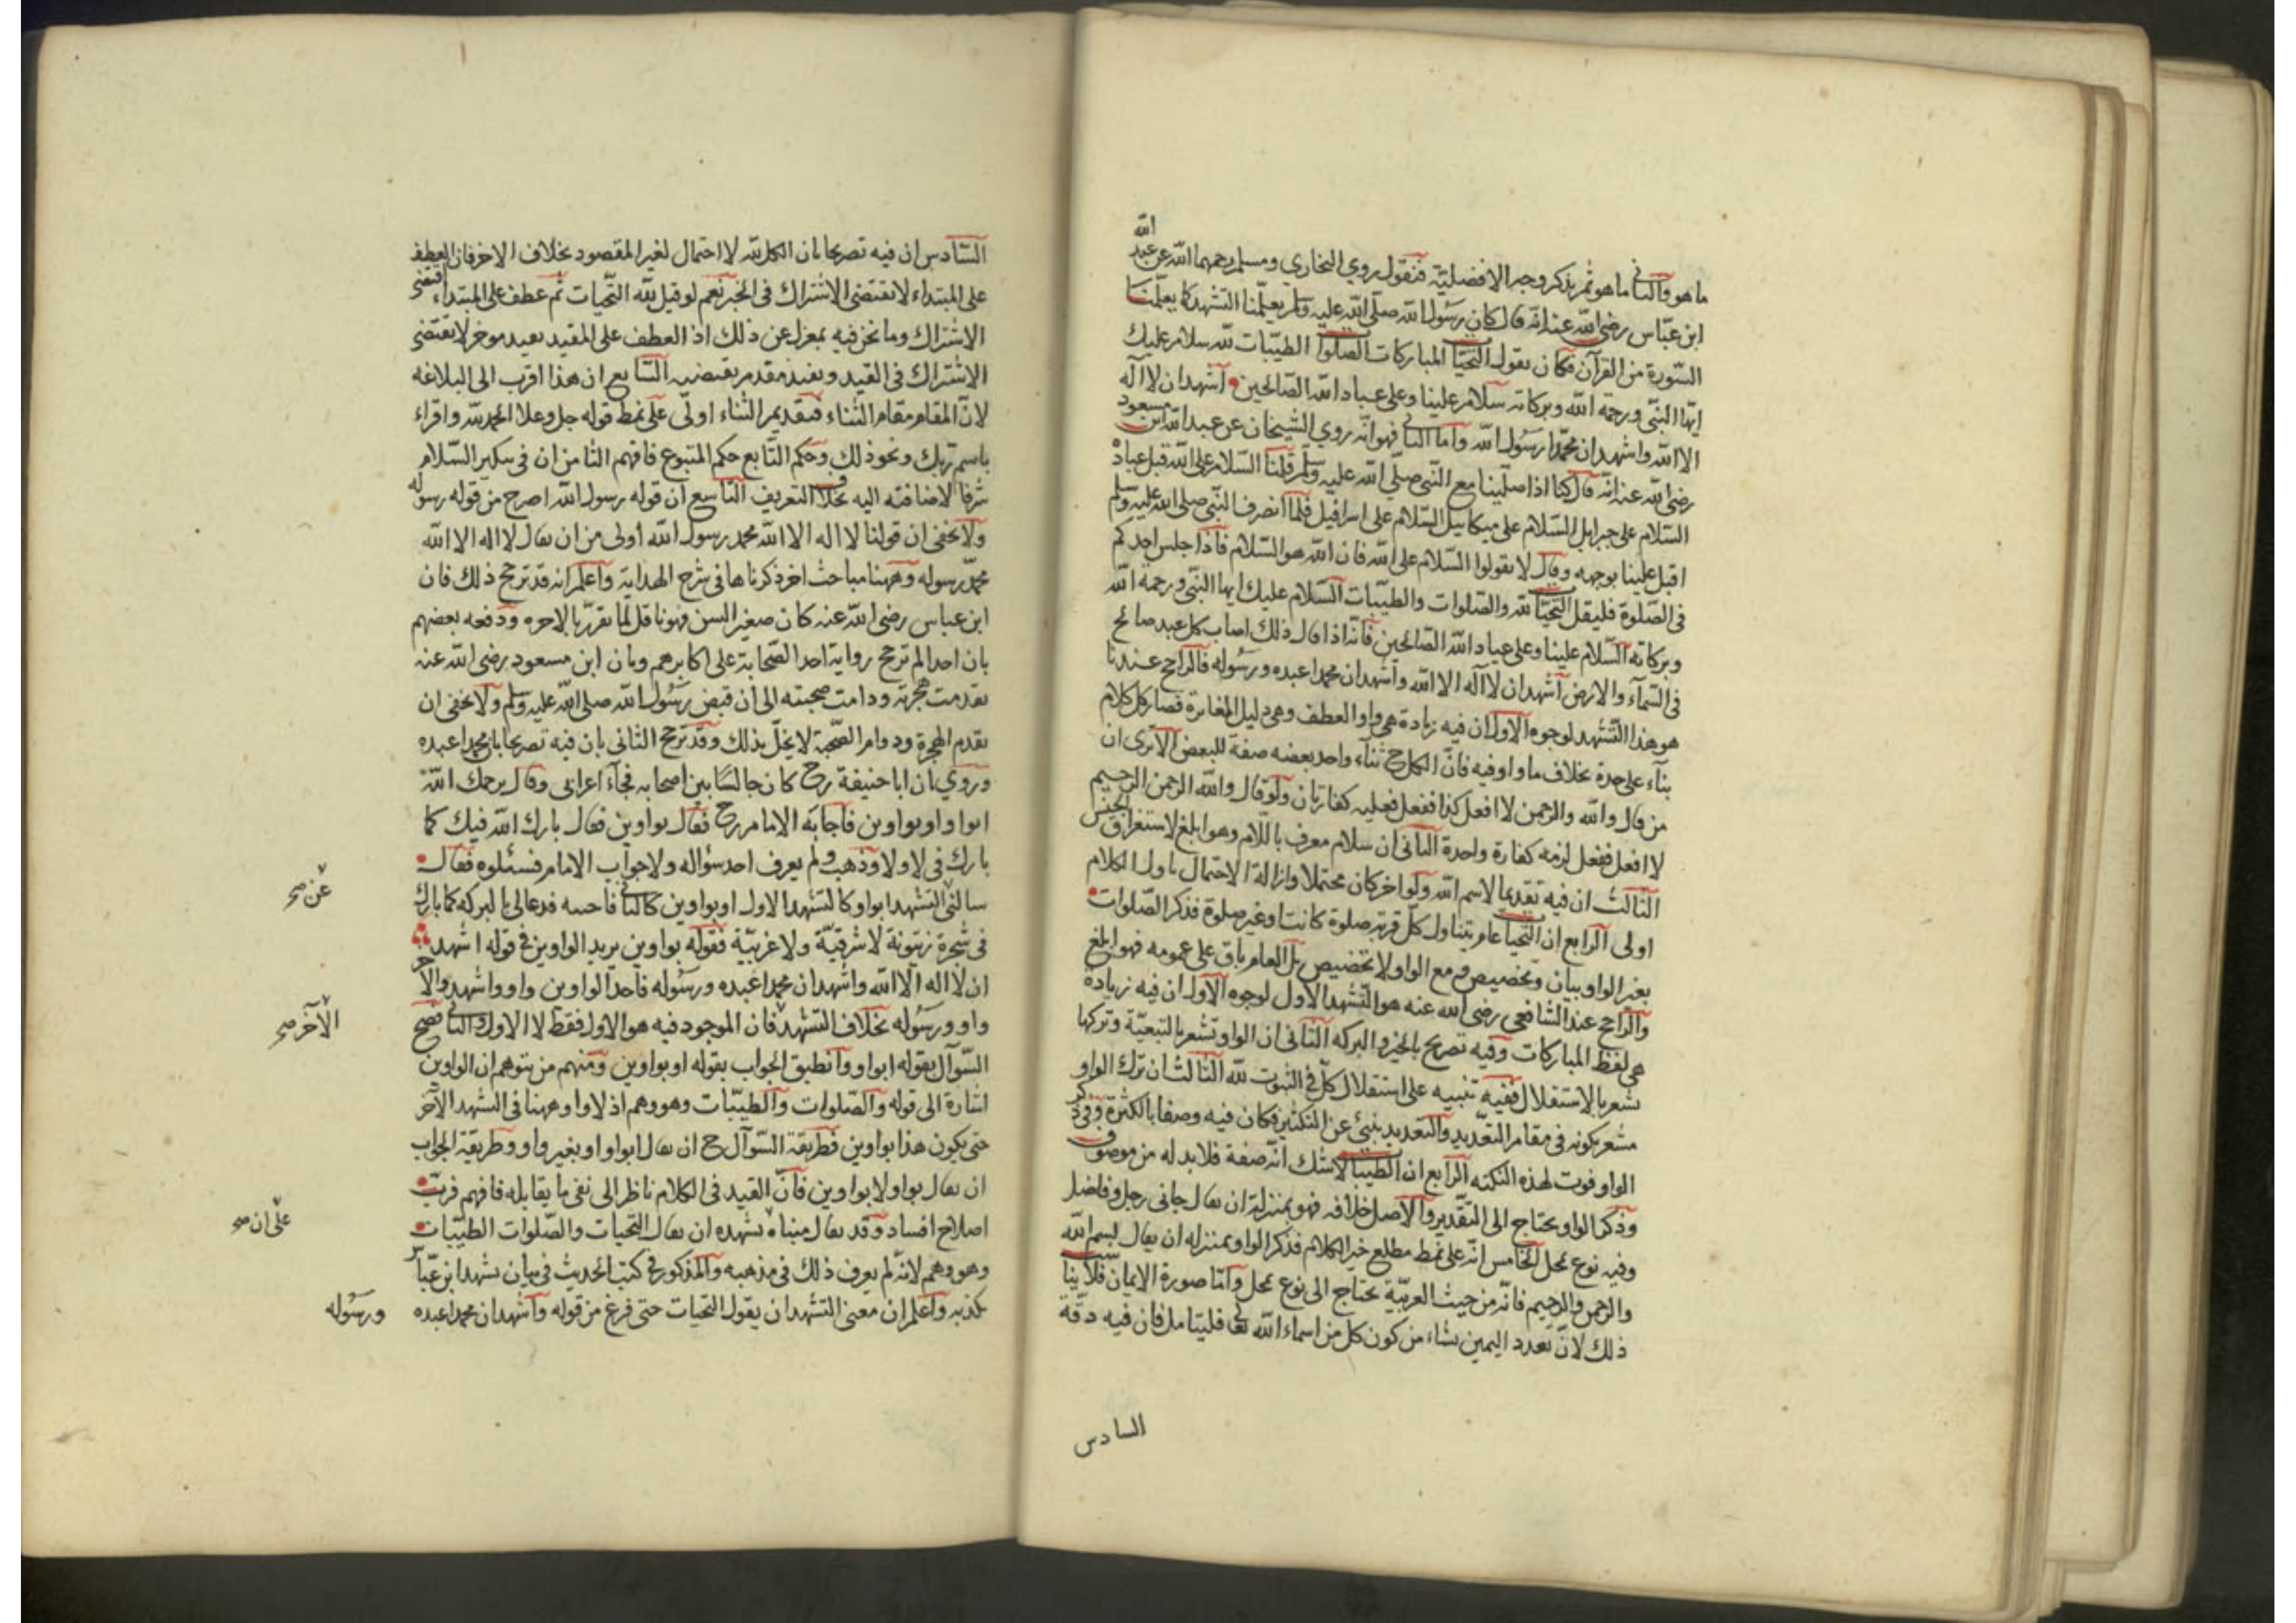 ما هو والثاني ما هو ثم يذكر وجه الافضلية فنقول روي البخاري ومسلم رحمهما الله عن عبد الله
ابن عبّاس رضى الله عنه انّه قال كان رسول الله صلّى الله عليه وسلم يعلّمنا التشهد كما يعلّمنا
السّورة من القرآن فكان يقول التحيّا المباركات الصلوا الطيّبات لله سلام عليك
ايّها النبّى ورحمة الله وبركاته سلام علينا وعلى عباد الله الصّالحين اشهد ان لا آله
الا الله واشهد ان محمّدا رسول الله واما الثانى فهو انّه روي الشيخان عن عبد الله ابن مسعود
رضى الله عنه انّه قال كنا اذا صلّينا مع النّبى صلّى الله عليه وسلم قلنا السّلام على الله قبل عباده
السّلام على جبرايل السّلام على ميكاييل السّلام على اسرافيل فلمّا انصرف النبّى صلى الله عليه وسلم
اقبل علينا بوجهه وقال لا تقولوا السّلام على الله فان الله هو السّلام فاذا جلس احدكم
فى الصّلوة فليقل التحيّا لله والصّلوات والطيّبات السّلام عليك ايها النبّى ورحمة الله
وبركاته السّلام علينا وعلى عباد الله الصّالحين فانّه اذا قال ذلك اصاب كل عبد صالح
فى السّماء والارض اشهد ان لا آله الا الله واشهد ان محمدا عبده ورسوله فالراجح عندنا
هو هذا التّشهد لوجوه الاول ان فيه زيادة هى واو العطف وهى دليل المغايرة فصار كل كلام
بناء على حدة بخلاف ما واو فيه فانّ الكل ح ثناء واحد بعضه صفة للبعض الا ترى ان
من قال والله والرحمن لا افعل كذا ففعل فعليه كفارتان ولو قال والله الرحمن الرحيم
لا افعل ففعل لزمه كفارة واحدة الثانى ان سلام معرف باللّام وهو ابلغ لاستغراق الجنس
الثالث ان فيه تقديما لاسم الله ولو اخر كان محتملا وازالة الاحتمال باول الكلام
اولى الرابع ان التحيا عام يتناول كلّ قربة صلوة كانت او غير صلوة فذكر الصّلوات
بغير الواو بيان وتخصيص ومع الواو لا تخصيص بل العام باق على عمومه فهو ابلغ
والرّاجح عند الشافعى رضى الله عنه هو التّشهد الاول لوجوه الاول ان فيه زيادة
هى لفظ المباركات وفيه تصريح بالخير والبركه الثانى ان الواو تشعر بالتبعيّة وتركها
يشعر بالاستقلال ففيه تنبيه على استقلال كلّ فى الثبوت لله الثالث ان ترك الواو
مشعر بكونه فى مقام التعديد والتعديد ينبئ عن التكثير فكان فيه وصفا بالكثرة وفى ذكر
الواو فوت لهذه النكته الرابع ان الطيبا لا شك انّه صفة فلا بد له من موصوف
وذكر الواو يحتاج الى التقدير والاصل خلافه فهو بمنزلة ان يقال جانى رجل وفاضل
وفيه نوع محل الخامس انّه على نمط مطلع خير الكلام فذكر الواو بمنزله ان يقال بسم الله
والرحمن والرحيم فانّه من حيث العربيّة يحتاج الى نوع محل وامّا صورة الايمان فلا ينا
ذلك لانّ تعدد اليمين نشاء من كون كل من اسماء الله تعا فليتامل فان فيه دقّة
السادس
السّادس ان فيه تصريحا بان الكل لله لا احتمال لغير المقصود بخلاف الاخر فان العطف
على المبتداء لا يقتضى الاشتراك فى الخبر نعم لو قيل لله التّحيات ثم عطف على المبتداء اقتضى
الاشتراك وما نحن فيه بمعزل عن ذلك اذ العطف على المقيد بقيد موخر لا يقتضى
الاشتراك فى القيد وبقيد مقدم يقتضيه السّابع ان هذا اقرب الى البلاغه
لانّ المقام مقام الثناء فتقديم الثناء اولّى على نمط قوله جل وعلا الحمد لله واقراء
باسم ربّك ونحو ذلك وحكم التّابع حكم المتبوع فافهم الثامن ان فى تنكير السّلام
شرفا لاضافته اليه بخلاف التعريف التّاسع ان قوله رسول الله اصرح من قوله رسوله
ولا يخفى ان قولنا لا اله الا الله محمد رسول الله اولى من ان يقال لا اله الا الله
محمّد رسوله وههنا مباحث اخر ذكرناها فى شرح الهداية واعلم انه قد ترجح ذلك فان
ابن عباس رضى الله عنه كان صغير السن فهو ناقل لما تقرر بالاخره ودفعه بعضهم
بان احدا لم ترجح رواية احد الصّحابة على اكابرهم وبان ابن مسعود رضى الله عنه
تقدمت هجرته ودامت صحبته الى ان قبض رسول الله صلى الله عليه وسلم ولا يخفى ان
تقدم الهجرة ودوام الصّحبة لا يخلّ بذلك وقد ترجح الثانى بان فيه تصريحا بان محمدا عبده
وروي بان ابا حنيفة رح كان جالسًا بين اصحابه فجاء اعرابى وقال يرحمك الله
ابواو او بواوين فاجابه الامام رح فقال بواوين فقال بارك الله فيك كما
بارك فى لا ولا وذهب ولم يعرف احد سؤاله ولا جواب الامام فسئلوه فقال
سالنى التشهد ابواو كالتشهد الاول او بواوين كالثانى فاجبته فدعا لى بالبركه كما بارك
عن صح
فى شجرة زيتونة لا شرقيّة ولا غربيّة فقوله بواوين يريد الواوين فى قوله اشهد
ان لا اله الا الله واشهد ان محمدا عبده ورسوله فاحد الواوين واو واشهد والآخر
واو ورسوله بخلاف التشهد فان الموجود فيه هو الاول فقط لا الاول والثانى فصح
الآخر صح
السّوآل بقوله ابواو وانطبق الجواب بقوله او بواوين ومنهم من يتوهم ان الواوين
اشارة الى قوله والصّلوات والطيّبات وهو وهم اذ لا واو ههنا فى التشهد الآخر
حتى يكون هذا بواوين فطريقة السّوآل ح ان يقال ابواو او بغير واو وطريقة الجواب
ان يقال بواو لا بواوين فانّ القيد فى الكلام ناظر الى نفى ما يقابله فافهم فربّ
اصلاح افساد وقد يقال مبناه تشهده ان يقال التحيات والصّلوات الطيّبات
على ان صح
وهو وهم لانّه لم يعرف ذلك فى مذهبه والمذكور فى كتب الحديث فى بيان تشهد ابن عبّا
يكذبه واعلم ان معنى التشهد ان يقول التحيات حتى فرغ من قوله واشهد ان محمدا عبده
ورسوله